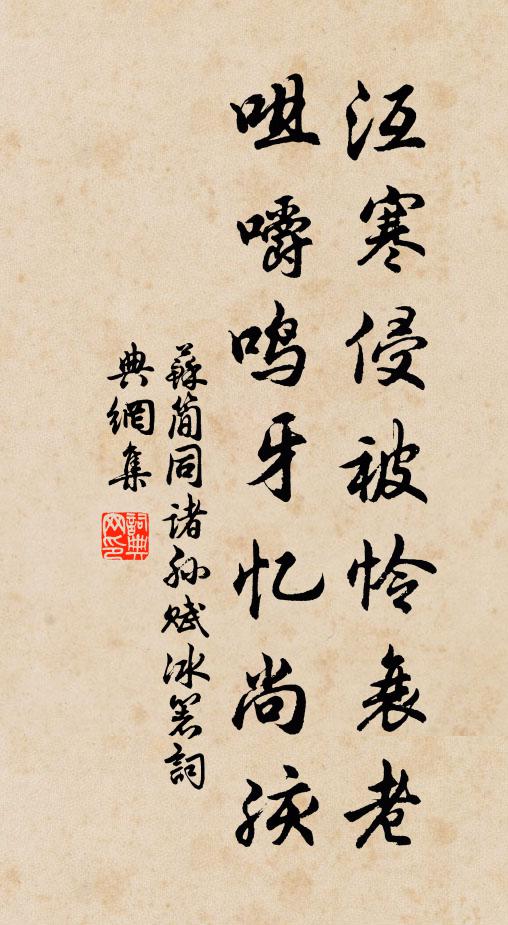 沍寒侵被怜衰老
咀嚼鸣牙忆尚孩
蘇简同诸孙赋冰箸詞
典網集
詞典
网印